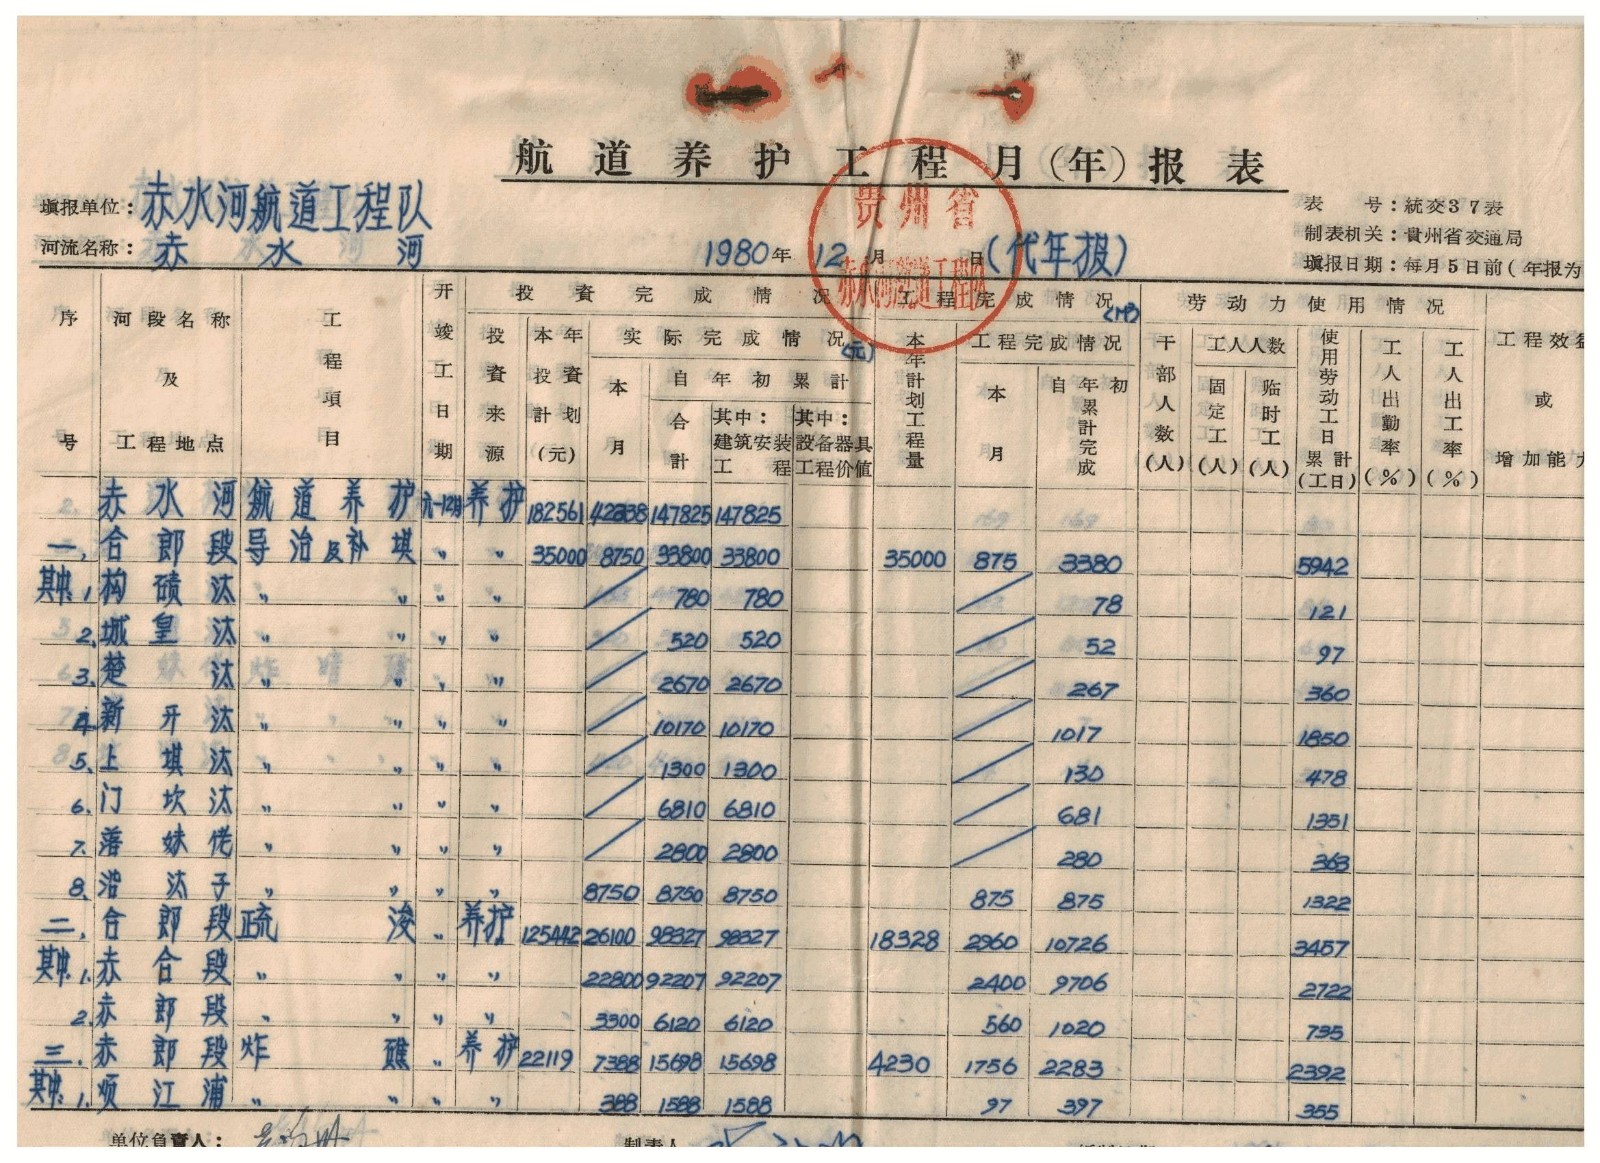 航道养护工程月(年)报表
填报单位：赤水河航道工程队
表　号：統交37表
河流名称：赤水河
1980年12月　日(代年报)
制表机关：貴州省交通局
填报日期：每月5日前(年报为
贵州省
赤水河航道工程队
序号
河段名称及工程地点
工程項目
开竣工日期
投資完成情况
投資来源
本年投資計划(元)
实际完成情况(元)
本月
自年初累計
合計
其中：建筑安装工程
其中：設备器具工程价值
工程完成情况(M³)
本年計划工程量
工程完成情况
本月
自年初累計完成
劳动力使用情况
干部人数(人)
工人人数
固定工(人)
临时工(人)
使用劳动工日累計(工日)
工人出勤率(%)
工人出工率(%)
工程效益或增加能力
赤水河 航道养护 元-12月 养护 182561 42238 147825 147825
一、合郎段 导治及补填 〃 〃 35000 8750 33800 33800 35000 875 3380 5942
其中：1. 构碛汰 〃 〃 〃 〃 780 780 78 121
2. 城皇汰 〃 〃 〃 〃 520 520 52 97
3. 楚汰 〃 〃 〃 〃 2670 2670 267 360
4. 新开汰 〃 〃 〃 〃 10170 10170 1017 1850
5. 上堪汰 〃 〃 〃 〃 1300 1300 130 478
6. 门坎汰 〃 〃 〃 〃 6810 6810 681 1351
7. 落妹佬 〃 〃 〃 〃 2800 2800 280 363
8. 汰子 〃 〃 〃 〃 8750 8750 8750 875 875 1322
二、合郎段 疏浚 〃 养护 125442 26100 98327 98327 18328 2960 10726 3457
其中：1. 赤合段 〃 〃 〃 〃 22800 92207 92207 2400 9706 2722
2. 赤郎段 〃 〃 〃 〃 3300 6120 6120 560 1020 735
三. 赤郎段 炸礁 〃 养护 22119 7388 15698 15698 4230 1756 2283 2392
其中：1. 烦江浦 〃 〃 〃 〃 388 1588 1588 97 397 355
单位負責人：
制表人